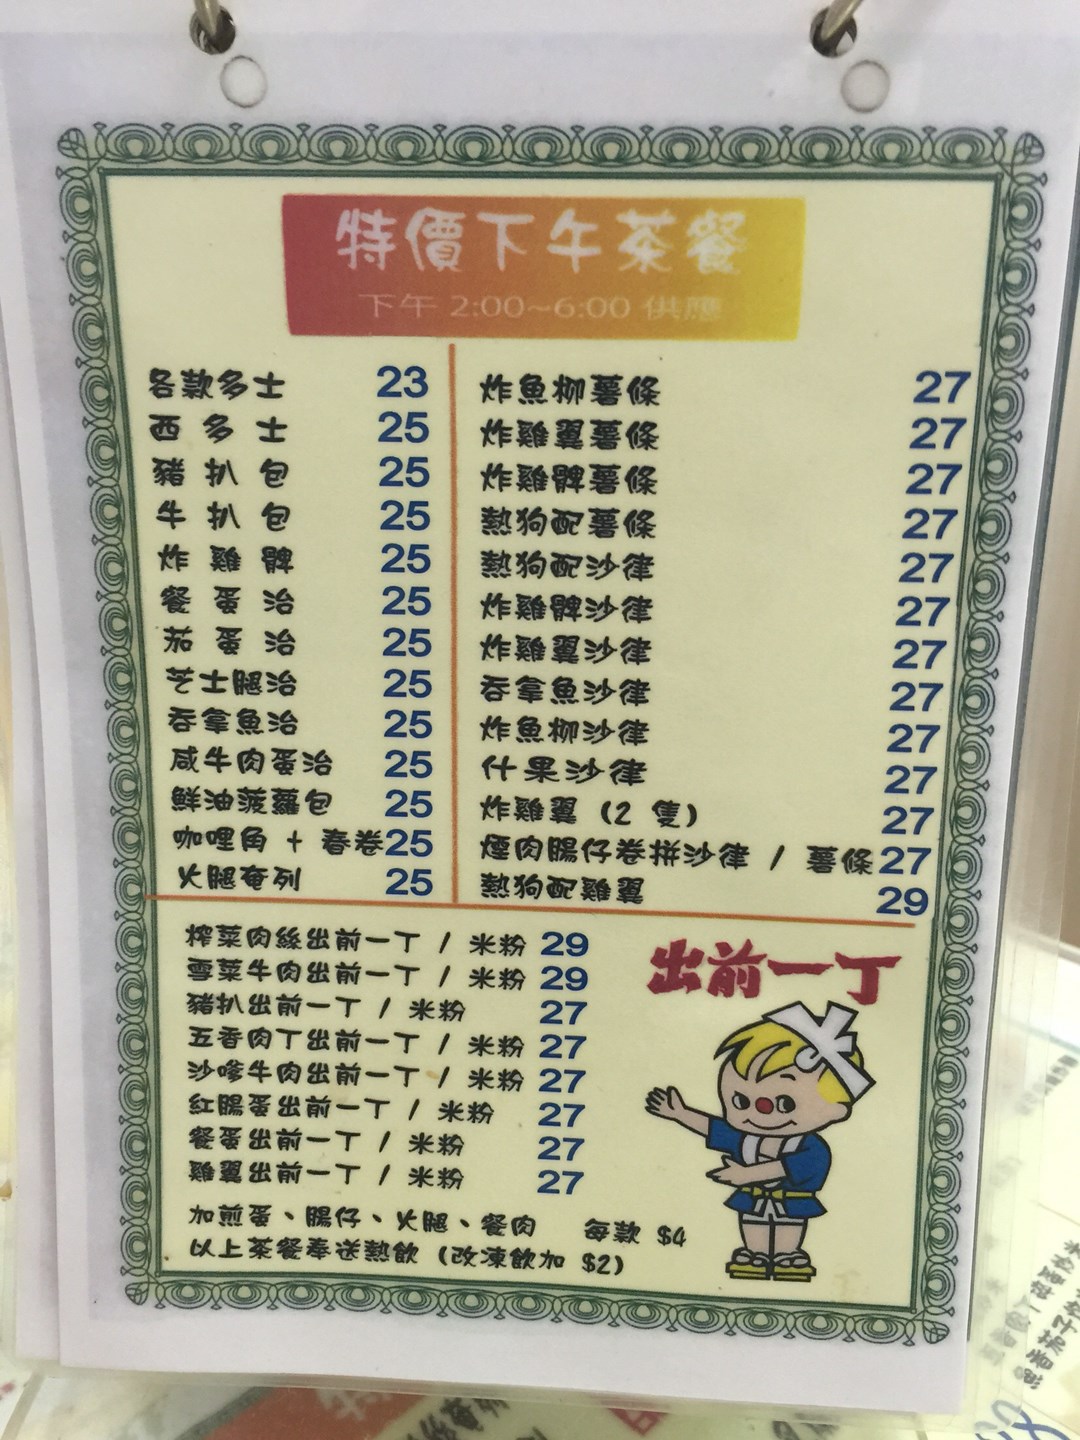 特價下午茶餐
下午 2:00~6:00 供應
各款多士 23
西多士 25
豬扒包 25
牛扒包 25
炸雞髀 25
餐蛋治 25
茄蛋治 25
芝士腿治 25
吞拿魚治 25
咸牛肉蛋治 25
鮮油菠蘿包 25
咖哩角 + 春卷 25
火腿奄列 25
炸魚柳薯條 27
炸雞翼薯條 27
炸雞髀薯條 27
熱狗配薯條 27
熱狗配沙律 27
炸雞髀沙律 27
炸雞翼沙律 27
吞拿魚沙律 27
炸魚柳沙律 27
什果沙律 27
炸雞翼 (2 隻) 27
煙肉腸仔卷拼沙律 / 薯條 27
熱狗配雞翼 29
榨菜肉絲出前一丁 / 米粉 29
雪菜牛肉出前一丁 / 米粉 29
豬扒出前一丁 / 米粉 27
五香肉丁出前一丁 / 米粉 27
沙嗲牛肉出前一丁 / 米粉 27
紅腸蛋出前一丁 / 米粉 27
餐蛋出前一丁 / 米粉 27
雞翼出前一丁 / 米粉 27
出前一丁
加煎蛋、腸仔、火腿、餐肉 每款 $4
以上茶餐奉送熱飲 (改凍飲加 $2)